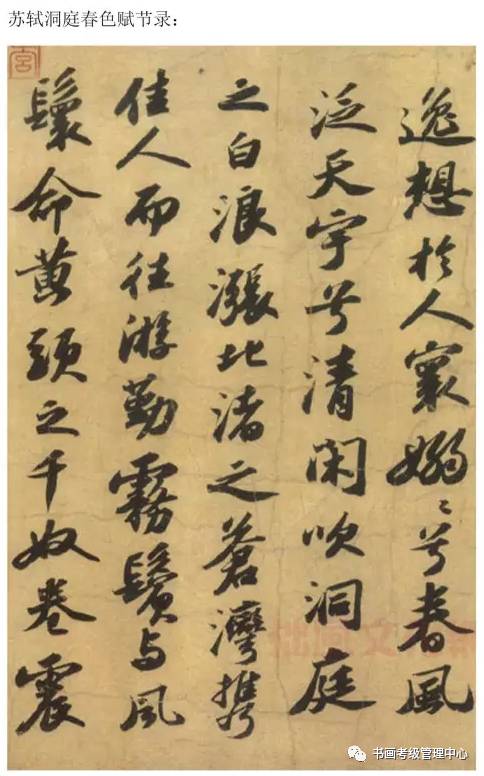 苏轼洞庭春色赋节录：
逸想於人寰嫋〻兮春風
泛天宇兮清閑吹洞庭
之白浪漲北渚之蒼灣攜
佳人而往游勤霧鬢与風
鬟命黄頭之千奴卷震
书画考级管理中心